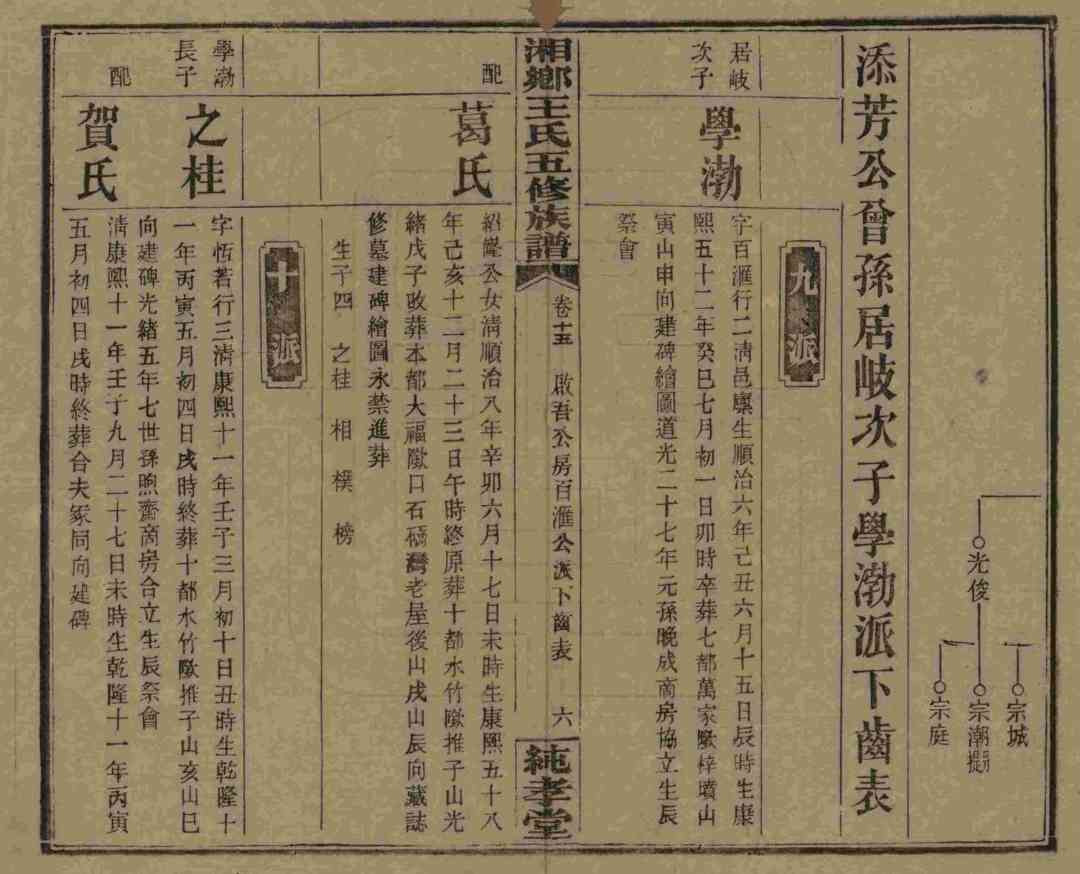 光俊
宗城
宗潮
宗庭
添芳公曾孫居岐次子學渤派下齒表
九派
居岐
次子
學渤
字百滙行二清邑廩生順治六年己丑六月十五日辰時生康
熙五十二年癸巳七月初一日卯時卒葬七都萬家墺梓墳山
寅山申向建碑繪圖道光二十七年元孫晚成商房協立生辰
祭會
湘鄉王氏五修族譜
卷十五
啟吾公房百滙公派下齒表
六
純孝堂
配
葛氏
紹隆公女清順治八年辛卯六月十七日未時生康熙五十八
年己亥十二月二十三日午時終原葬十都水竹墺推子山光
緒戊子改葬本都大福墺口石橋灣老屋後山戌山辰向藏誌
修墓建碑繪圖永禁進葬
生子四 之桂 相 樸 榜
十派
學渤
長子
之桂
字恬若行三清康熙十一年壬子三月初十日丑時生乾隆十
一年丙寅五月初四日戌時終葬十都水竹墺推子山亥山巳
向建碑光緒五年七世孫煦齋商房合立生辰祭會
配
賀氏
清康熙十一年壬子九月二十七日未時生乾隆十一年丙寅
五月初四日戌時終葬合夫冢同向建碑